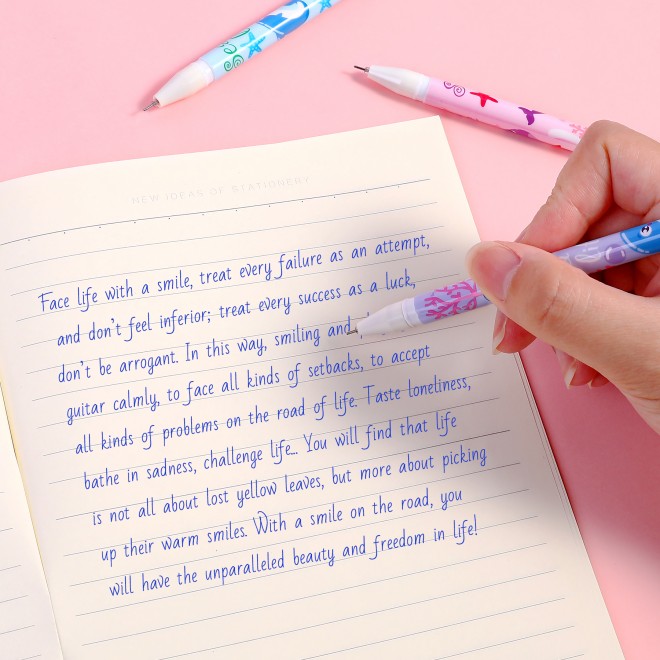 NEW IDEAS OF STATIONERY
Face life with a smile, treat every failure as an attempt,
and don't feel inferior; treat every success as a luck,
don't be arrogant. In this way, smiling and
guitar calmly, to face all kinds of setbacks, to accept
all kinds of problems on the road of life. Taste loneliness,
bathe in sadness, challenge life... You will find that life
is not all about lost yellow leaves, but more about picking
up their warm smiles. With a smile on the road, you
will have the unparalleled beauty and freedom in life!